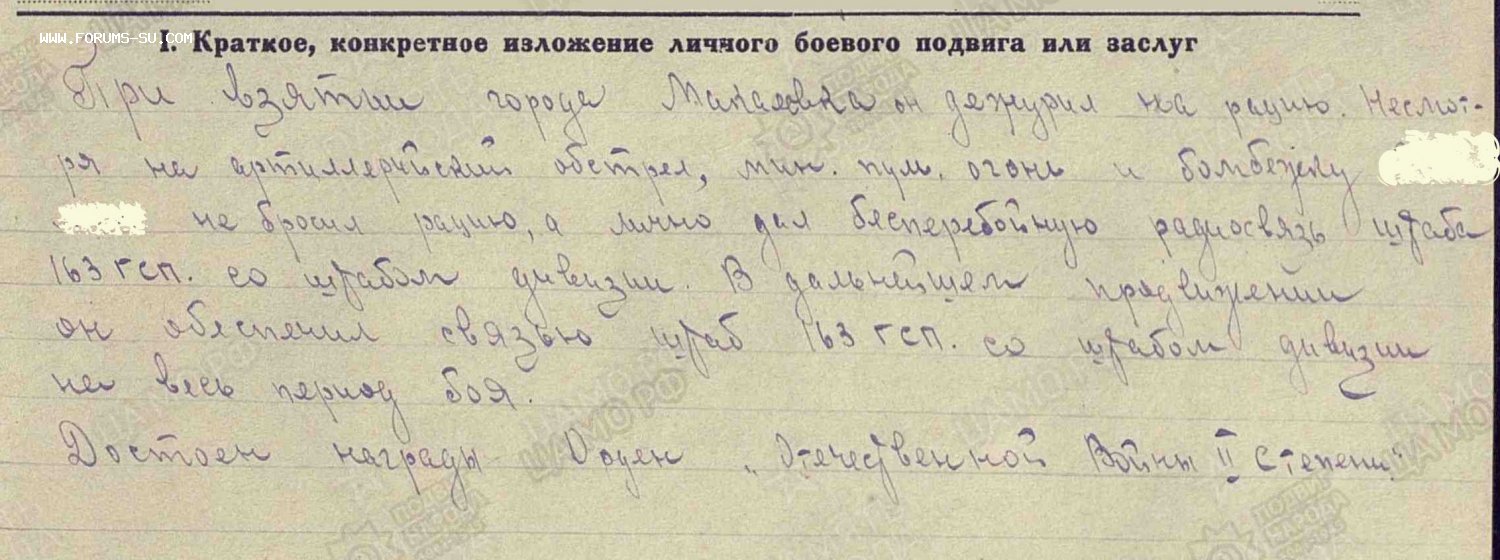 WWW.FORUMS-SU.COM
I. Краткое, конкретное изложение личного боевого подвига или заслуг
При взятии города Макаловка он дежурил на рацию. Несмот-
ря на артиллерийский обстрел, мин. пул. огонь и бомбежку
не бросил рацию, а лично дал бесперебойную радиосвязь штаба
163 гсп. со штабом дивизии. В дальнейшем продвижении
он обеспечил связью штаб 163 гсп. со штабом дивизии
на весь период боя.
Достоен награды Орден „Отечественной Войны II степени“